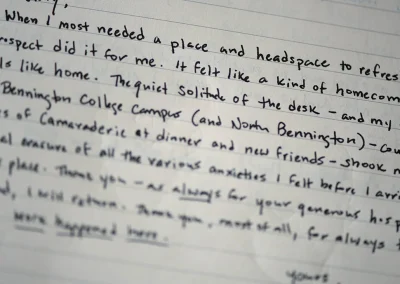 When I most needed a place and headspace to refres
rospect did it for me. It felt like a kind of homecom
ls like home. The quiet solitude of the desk – and my
Bennington College Campus (and North Bennington) – cou
s of Camaraderie at dinner and new friends – shook m
al erasure of all the various anxieties I felt before I arri
place. Thank you – as always for your generous hosp
d, I will return. Thank you, most of all, for always
work happened here.
yours,